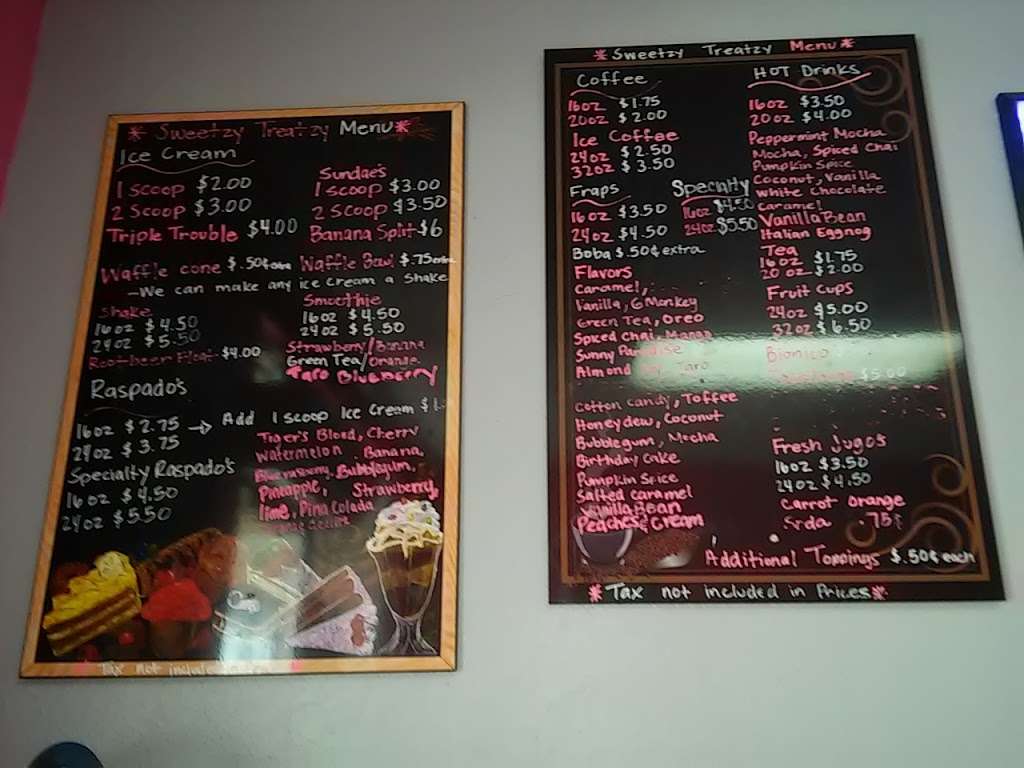 * Sweetzy Treatzy Menu*
Ice Cream
1 scoop $2.00
2 Scoop $3.00
Triple Trouble $4.00
Sundae's
1 scoop $3.00
2 scoop $3.50
Banana Split $6
Waffle cone $.50¢ extra Waffle Bowl $.75 extra
-We can make any ice cream a Shake
Shake
16oz $4.50
24oz $5.50
Rootbeer Float $4.00
Smoothie
16oz $4.50
24oz $5.50
Strawberry/Banana
Green Tea/Orange
Taro Blueberry
Raspado's
16oz $2.75 → Add 1 scoop Ice Cream $1.
24oz $3.75
Specialty Raspado's
16oz $4.50
24oz $5.50
Tiger's Blood, Cherry
Watermelon Banana
Blue raspberry, Bubblegum,
Pineapple, Strawberry,
lime, Pina Colada
Tax not included
* Sweetzy Treatzy Menu*
Coffee
16oz $1.75
20oz $2.00
Ice Coffee
24oz $2.50
32oz $3.50
Fraps
16oz $3.50
24oz $4.50
Specialty
16oz $4.50
24oz $5.50
Boba $.50¢ extra
Flavors
Caramel,
Vanilla, G Monkey
Green Tea, Oreo
Spiced Chai, Mango
Sunny Paradise
Almond Joy Taro
Cotton Candy, Toffee
Honeydew, Coconut
Bubblegum, Mocha
Birthday Cake
Pumpkin Spice
Salted caramel
Vanilla Bean
Peaches & Cream
HOT Drinks
16oz $3.50
20oz $4.00
Peppermint Mocha
Mocha, Spiced Chai
Pumpkin Spice
Coconut, Vanilla
White Chocolate
Caramel
Vanilla Bean
Italian Eggnog
Tea
16oz $1.75
20oz $2.00
Fruit Cups
24oz $5.00
32oz $6.50
Bionico
$5.00
Fresh Jugo's
16oz $3.50
24oz $4.50
Carrot Orange
Soda .75¢
Additional Toppings $.50¢ each
*Tax not included in Prices*